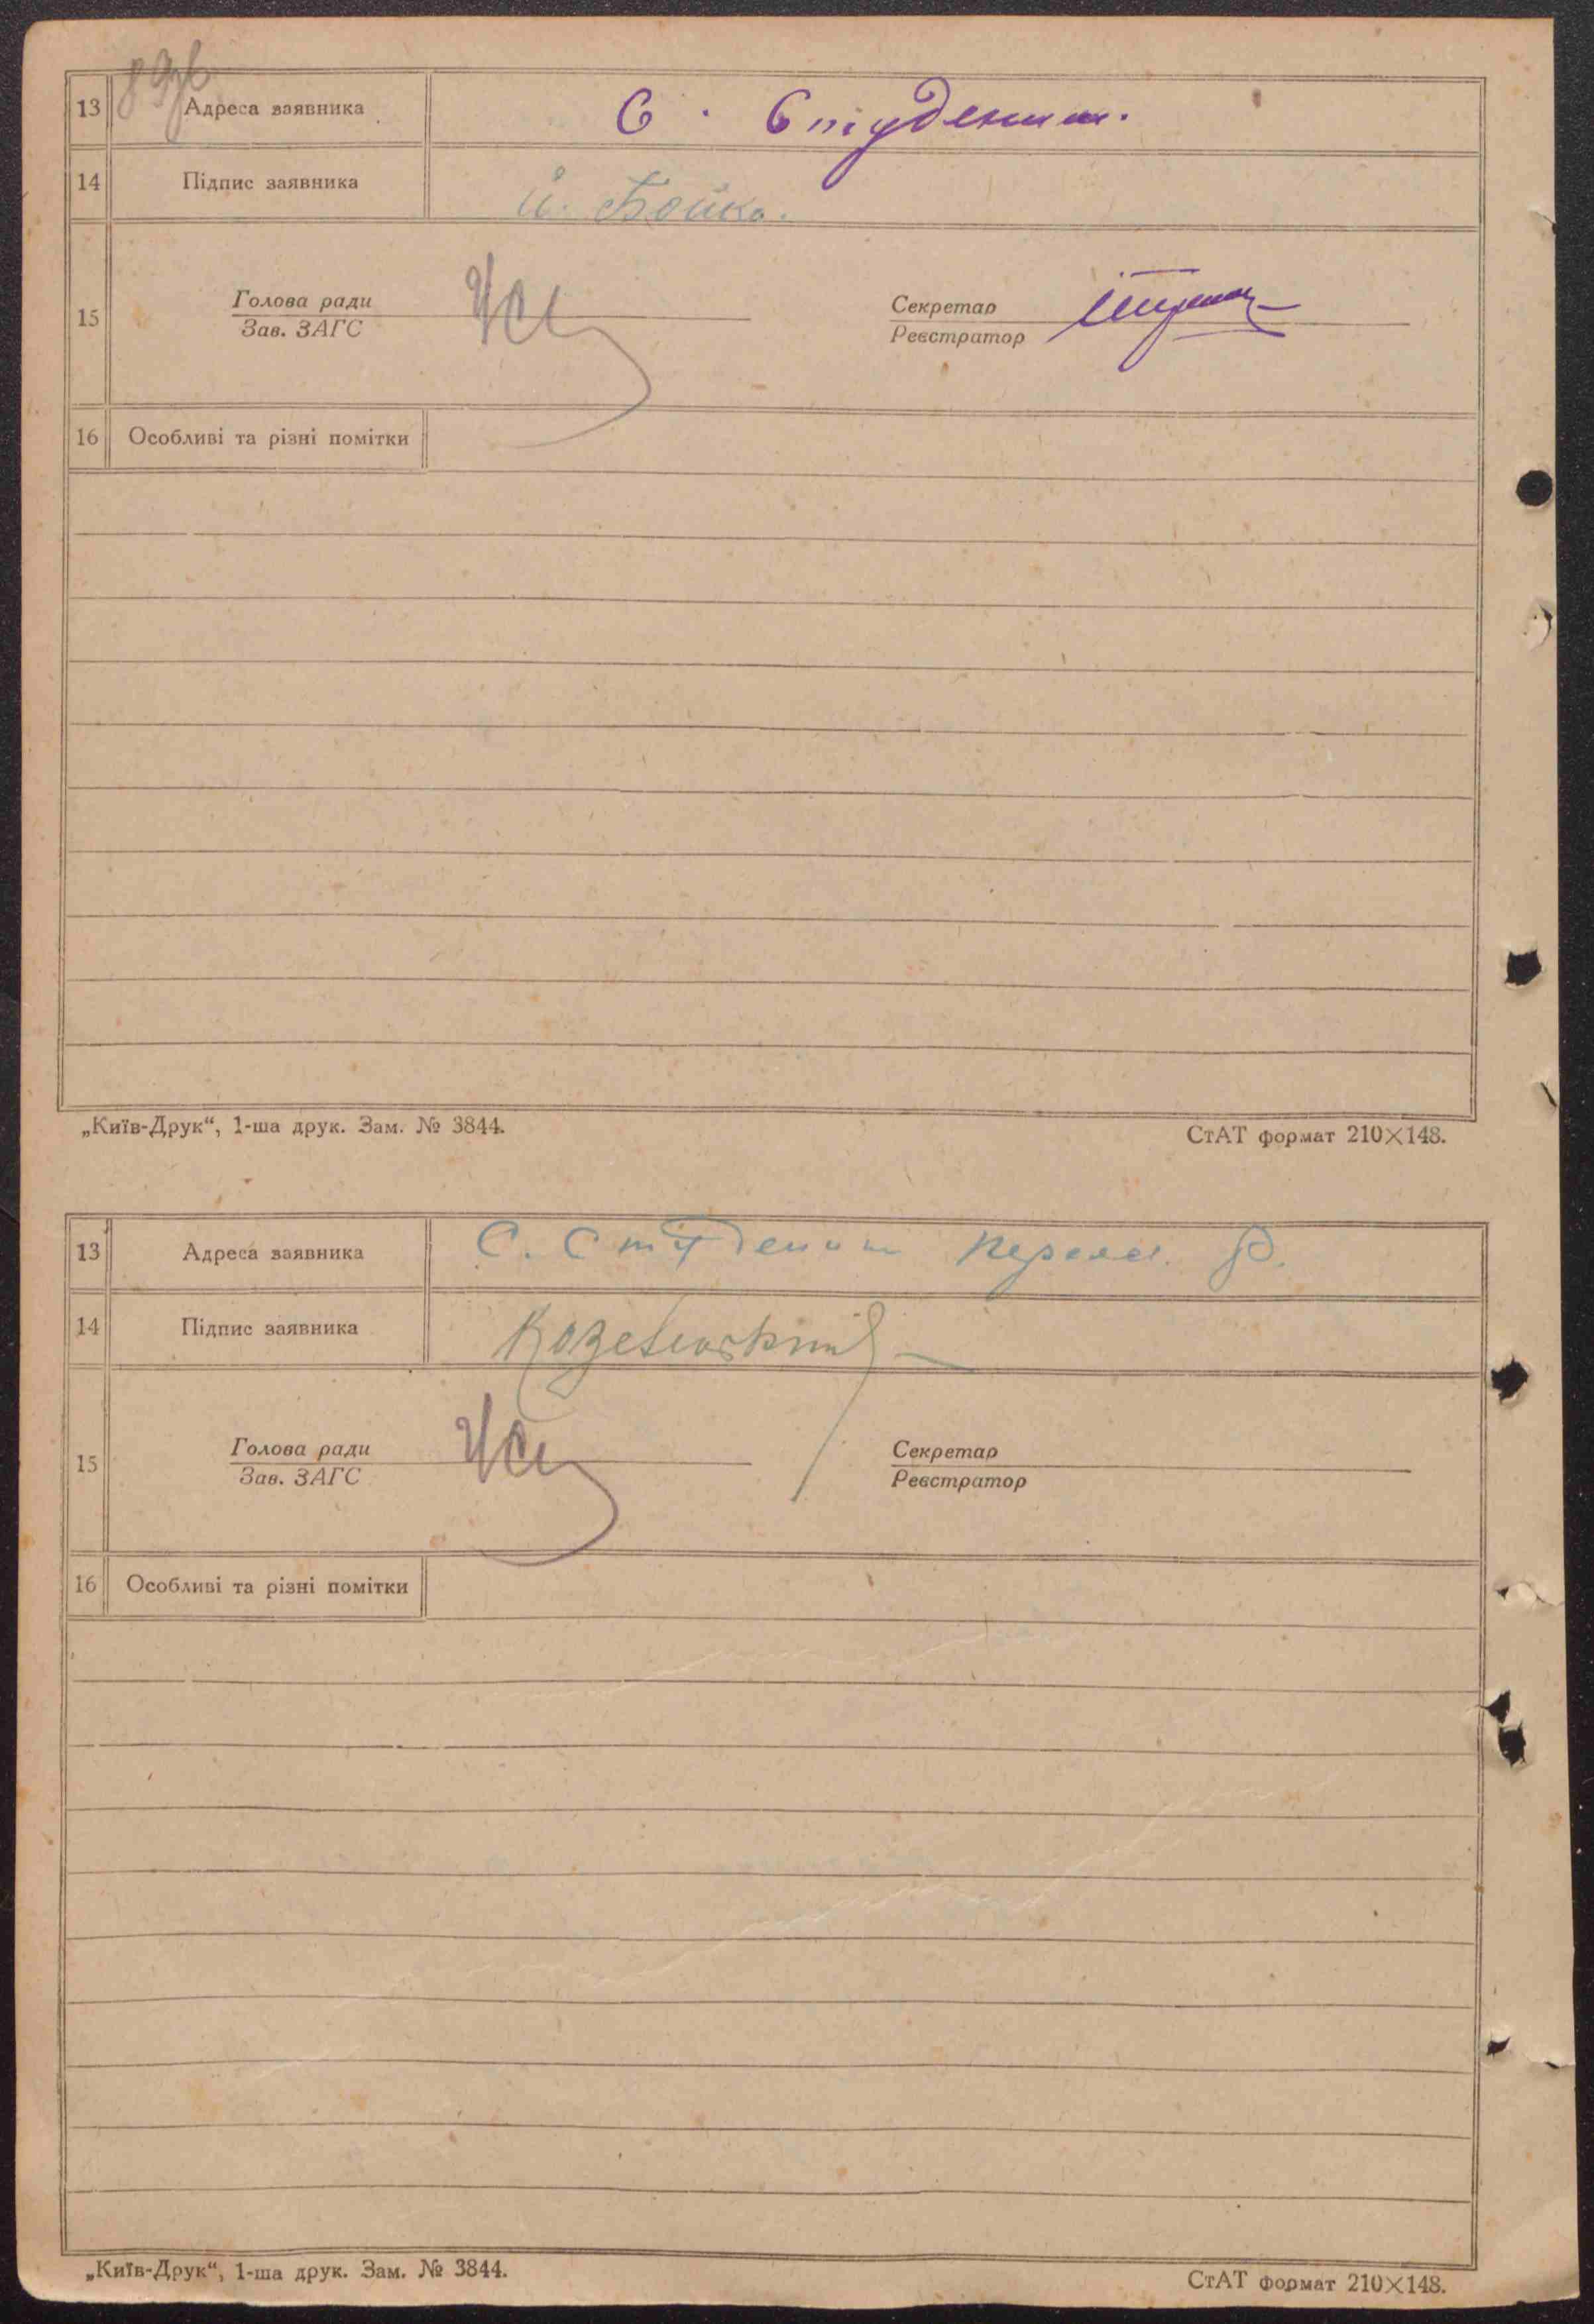 13 Адреса заявника С. Студениш.
14 Підпис заявника Й. Бойко.
15 Голова ради Секретар
Зав. ЗАГС Реєстратор
16 Особливі та різні помітки
„Київ-Друк“, 1-ша друк. Зам. № 3844. СтАТ формат 210×148.
13 Адреса заявника С. Студениш
14 Підпис заявника
15 Голова ради Секретар
Зав. ЗАГС Реєстратор
16 Особливі та різні помітки
„Київ-Друк“, 1-ша друк. Зам. № 3844. СтАТ формат 210×148.